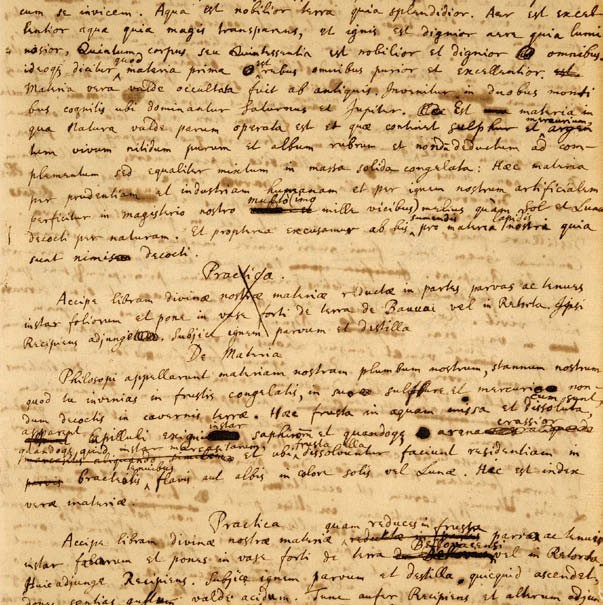 cum se invicem. Aqua est nobilior terra quia splendidior. Aer est excel-
lentior aqua quia magis transparens, et ignis est dignior aere quia lumi
nosior, Quintum corpus seu Quintessentia est nobilior et dignior omnibus.
ideoq; dicitur quod materia prima est rebus omnibus purior et excellentior.
Materia vera valde occultata fuit ab antiquis. Invenitur in duobus monti
bus cognitis ubi dominantur Saturnus et Jupiter. Est materia in
qua Natura valde parum operata est et quæ continet sulphur et mercurium argen
tum vivum nitidum purum et album rubrum et nondum deductum ad com-
plementum sed equaliter mixtum in massa solida congelata: Hæc materia
per prudentiam et industriam humanam et per ignem nostrum artificialem
perficitur in magisterio nostro multo (imo mille vicibus) melius quam Sol et Luna
decocti per naturam. Et propterea excusamur ab his sumendis pro materia lapidis nostri quia
sunt nimis decocti.
Practica.
Accipe libram divinæ nostræ materiæ reductæ in partes parvas ac tenues
instar foliorum et pone in vase forti de terra de Bauvai vel in Retorta. Ipsi
Recipiens adjunge. Subjice ignem parvum et destilla
De Materia
Philosophi appellarunt materiam nostram plumbum nostrum, stannum nostrum
quod tu invenias in frustis congelatis, in suo sulphure et mercurio non-
dum decoctis in cavernis terræ. Hæc frusta in aquam missa et dissoluta, cum sunt,
apparent Capilluli exigui instar saphirorum et quandoq; arena crassior
quandoq; quid instar et ubi dissolvuntur frusta illa faciunt residentiam in
bracteolis tenuibus flavis aut albis in colore solis vel Lunæ. Hæc est index
veræ materiæ.
Practica
Accipe libram divinæ nostræ materiæ quam reduces in frusta parva ac tenues
instar foliorum et pones in vase forti de terra Bellovacensi vel in Retorta
Huic adjunge Recipiens. Subjice ignem parvum et destilla quicquid ascendet,
donec sentias gustum valde acidum. Tunc aufer Recipiens et alterum adjun